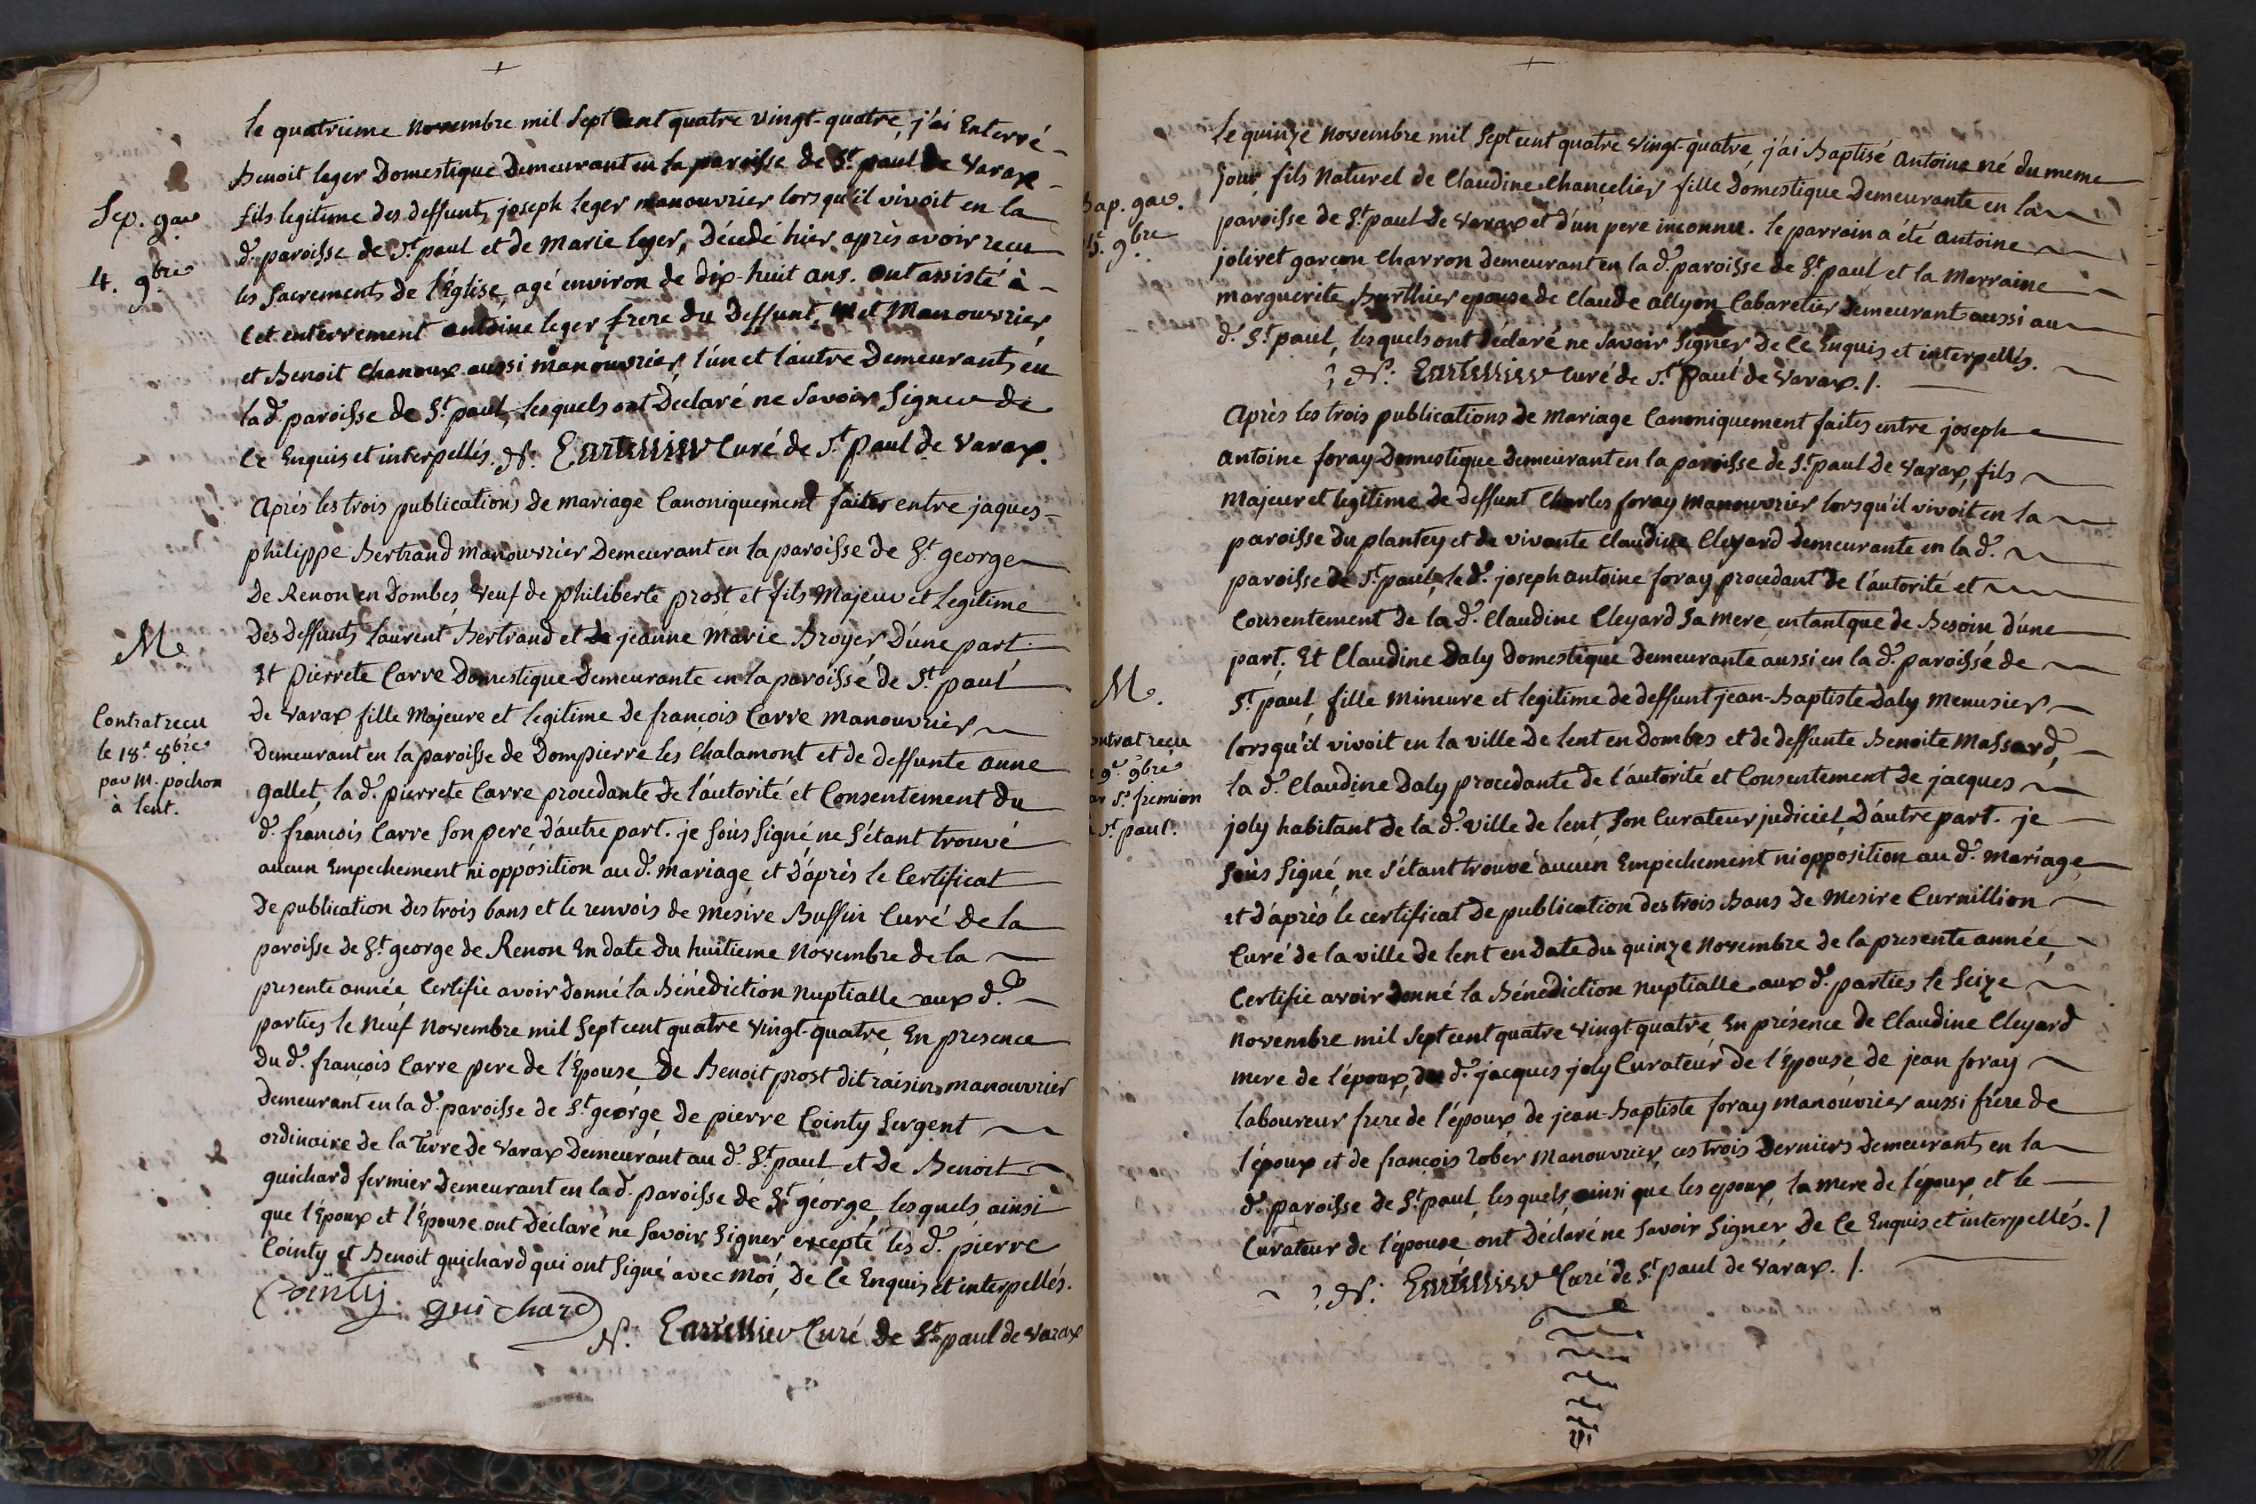 le quatrieme novembre mil sept cent quatre vingt-quatre, j'ai Enterré
Benoit leger Domestique Demeurant en la paroisse de St. paul de Varax
Sep. gav
4. 9bre
fils legitime des deffunts joseph leger manouvrier lorsqu'il vivoit en la
d. paroisse de St. paul et de Marie leger, Décedé hier après avoir reçu
les Sacrements de l'Église, agé environ de dix-huit ans. ont assisté à
cet enterrement antoine leger frere du Deffunt, et Manouvrier
et Benoit Chanoux aussi manouvrier, l'un et l'autre Demeurants en
la d. paroisse de St. paul, lesquels ont Déclaré ne Savoir Signer de
ce Enquis et interpellés. N. Curé de St. paul de Varax.
Après les trois publications de mariage Canoniquement faites entre jaques-
philippe Bertrand manouvrier Demeurant en la paroisse de St. george
de Renon en Dombes, Veuf de philiberte prost et fils Majeur et Legitime
M
Des deffunts laurent Bertrand et de jeanne Marie Broyer D'une part.
Et pierrete Carre Domestique Demeurante en la paroisse de St. paul
de Varax fille Majeure et legitime de françois Carre manouvrier
Contrat recu
le 18e. 8bre
par M. pochon
à lent.
Demeurant en la paroisse de Dompierre les Chalamont et de deffunte anne
gallet, la d. pierrete Carre procedante de l'autorité et Consentement du
d. françois Carre son pere d'autre part. je sous signé, ne s'étant trouvé
aucun Empechement ni opposition au d. mariage et d'après le Certificat
De publication des trois bans et le renvois de mesire Buffin Curé de la
paroisse de St. george de Renon En date du huitieme Novembre de la
presente année, Certifie avoir Donné la Bénédiction nuptialle aux d.
parties le Neuf Novembre mil Sept cent quatre Vingt-quatre, En presence
du d. françois Carre pere de l'Epouse, De Benoit prost dit raisin manouvrier
Demeurant en la d. paroisse de St. george, de pierre Cointy Sergent
ordinaire de la Terre de Varax Demeurant au d. St. paul et de Benoit
guichard fermier demeurant en la d. paroisse de St. george, lesquels ainsi
que l'Époux et l'Épouse ont Déclaré ne Savoir Signer excepté les d. pierre
Cointy et Benoit guichard qui ont Signé avec Moi, De ce Enquis et interpellés.
Cointy guichard
N. Curé de St. paul de Varax
le quinze novembre mil Sept cent quatre Vingt-quatre, j'ai Baptisé Antoine né du meme
jour fils Naturel de Claudine Chancelier fille Domestique Demeurante en la
Bap. gav.
15. 9bre
paroisse de St. paul de Varax et d'un pere inconnu. le parrain a été Antoine
jolivet garçon Charron demeurant en la d. paroisse de St. paul et la Marraine
marguerite Burthier epouse de Claude allyon Cabaretier Demeurant aussi au
d. St. paul, lesquels ont déclaré ne Savoir Signer De ce Enquis et interpellés.
N. Curé de St. paul de Varax./.
Après les trois publications de mariage Canoniquement faites entre joseph
Antoine foray Domestique demeurant en la paroisse de St. paul de Varax, fils
Majeur et legitime de deffunt Charles foray manouvrier lorsqu'il vivoit en la
paroisse du plantey et de vivante Claudine Cleyard demeurante en la d.
paroisse de St. paul, le d. joseph antoine foray procedant de l'autorité et
Consentement de la d. Claudine Cleyard sa mere, en tant que de Besoin d'une
part; Et Claudine Daly Domestique Demeurante aussi en la d. paroisse de
M.
St. paul, fille mineure et legitime de deffunt jean-Baptiste Daly Menusier
Contrat reçu
le 9e. 9bre
par Sr. fremion
à St. paul.
lorsqu'il vivoit en la ville de lent en Dombes et de deffunte Benoite Massard,
la d. Claudine Daly procedante de l'autorité et Consentement de jacques
joly habitant de la d. ville de lent, Son Curateur judiciel, D'autre part. je
Sous Signé ne s'étant trouvé aucun Empechement ni opposition au d. mariage,
et d'après le certificat de publication des trois Bans de Mesire Curnillion
Curé de la ville de lent en date du quinze novembre de la presente année,
Certifie avoir donné la Bénédiction nuptialle aux d. parties le seize
Novembre mil sept cent quatre vingt quatre, En présence de Claudine Cleyard
mere de l'époux, du d. jacques joly Curateur de l'Épouse, de jean foray
laboureur frere de l'époux, de jean-Baptiste foray manouvrier aussi frere de
l'époux et de françois Rober Manouvrier, ces trois Derniers demeurants en la
d. paroisse de St. paul, lesquels, ainsi que les epoux, la mere de l'époux, et le
Curateur de l'épouse, ont Déclaré ne Savoir Signer, De ce Enquis et interpellés./
N. Curé de St. paul de Varax./.